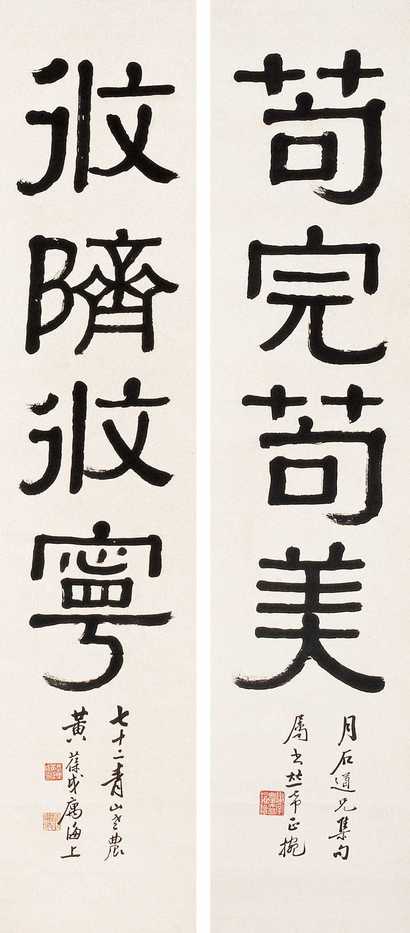 苟完苟美
月石道兄集句
屬書並希正捥
攸隮攸寧
七十二青山老農
黃葆戉寓海上